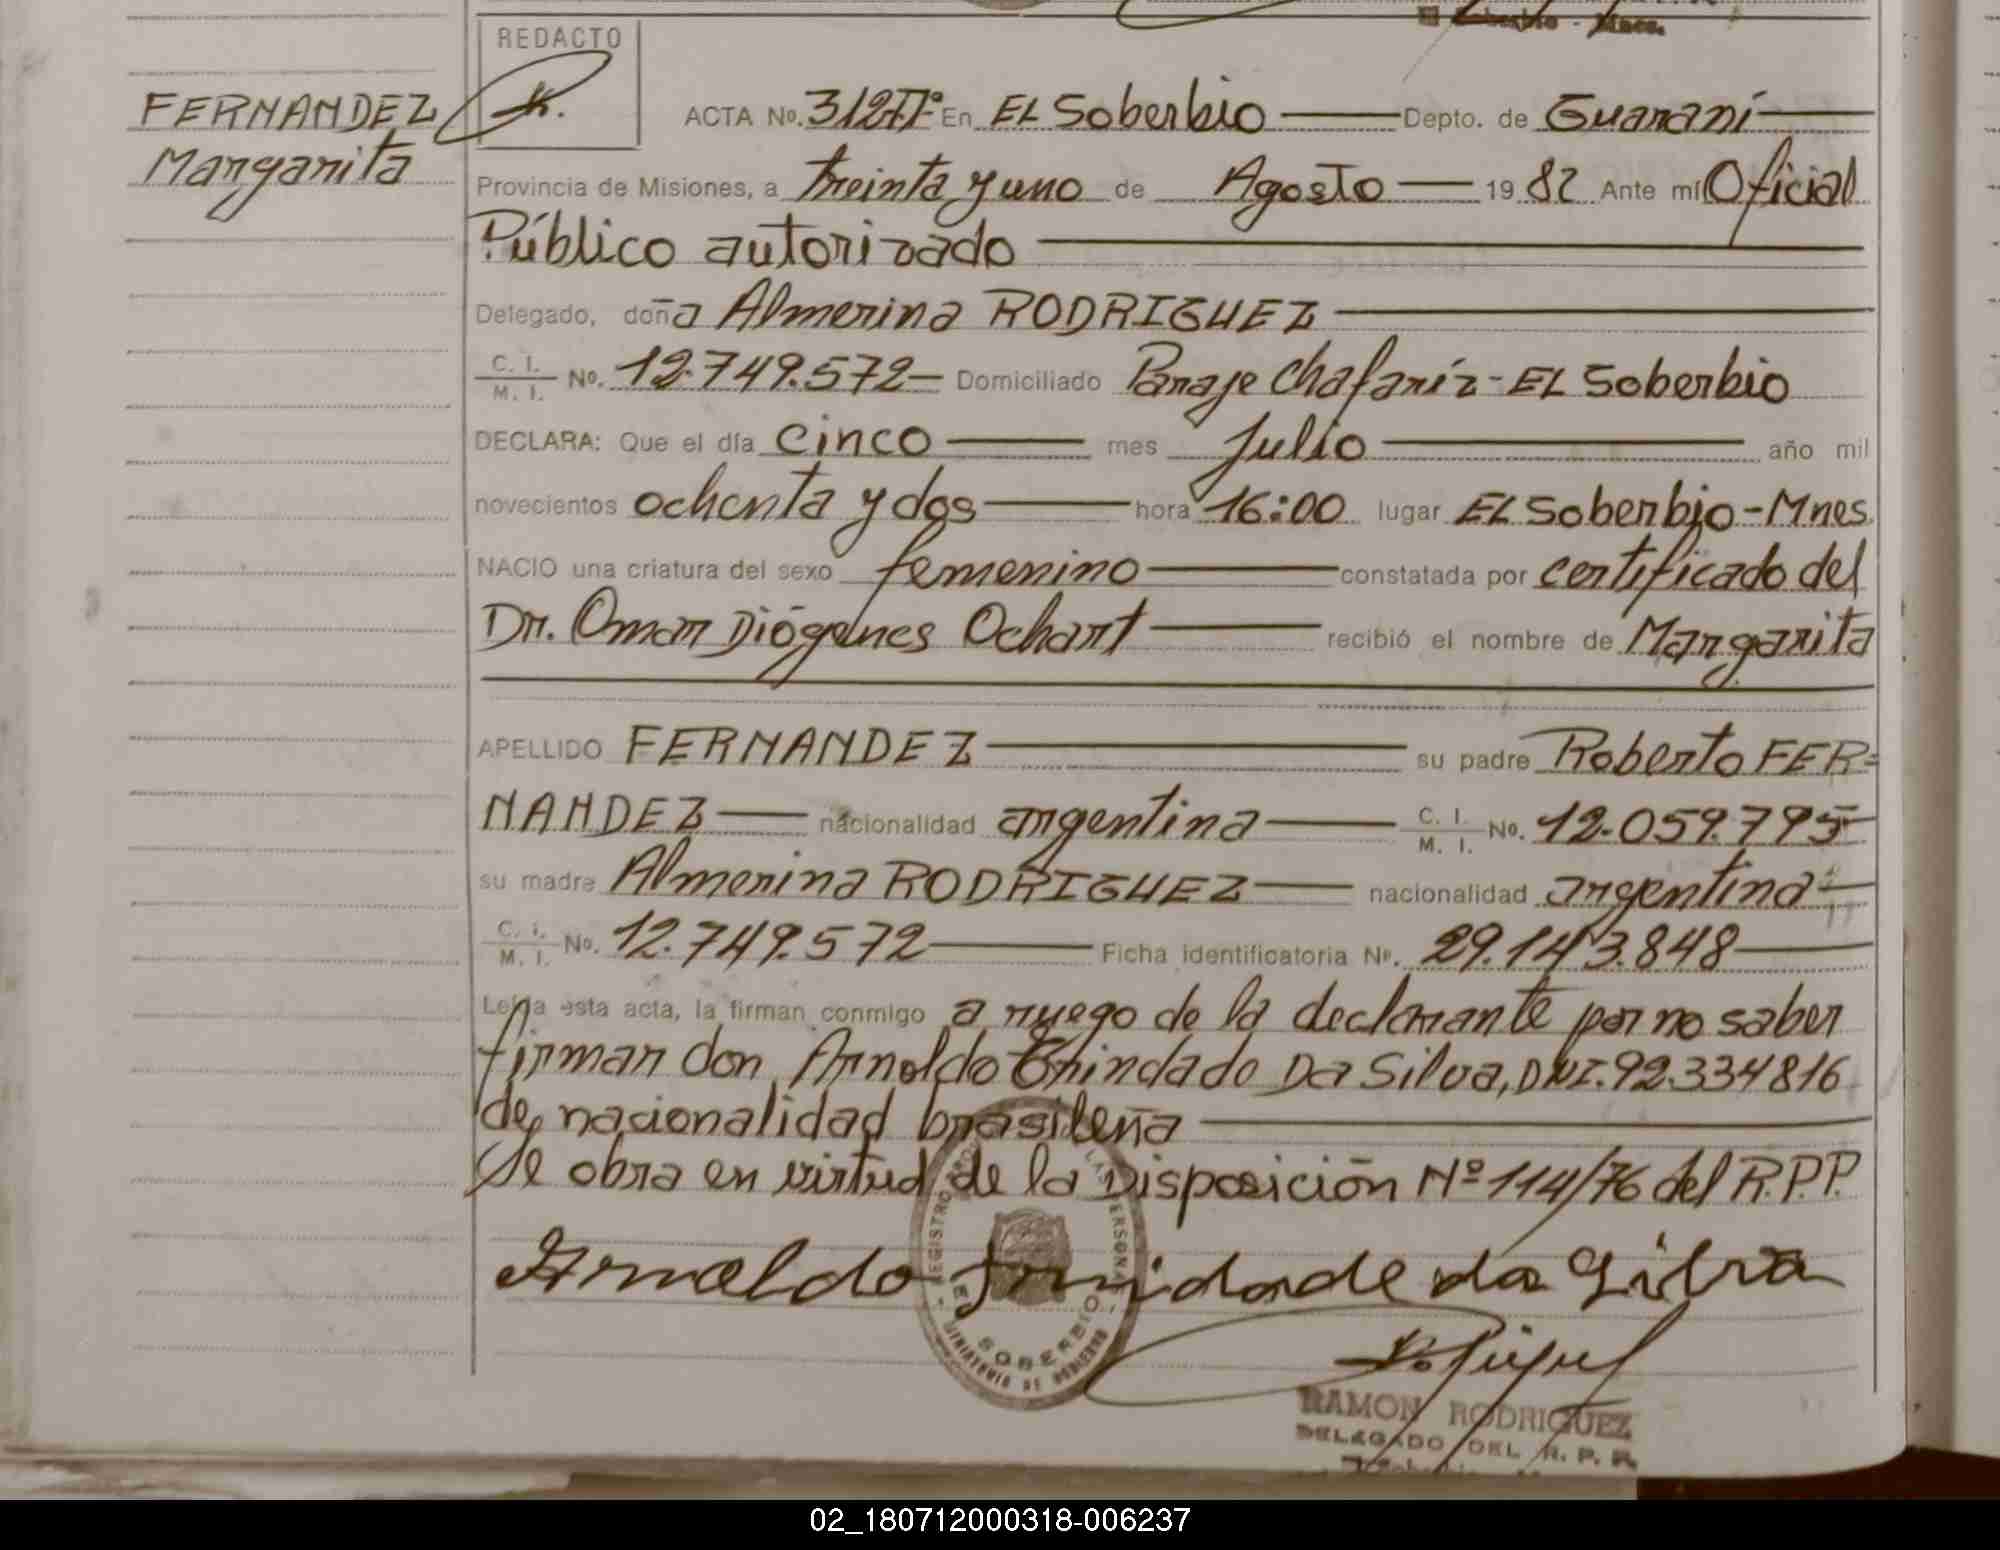 Soberbio - Mnes.
REDACTO
FERNANDEZ
Margarita
ACTA Nº. 312 Tº En EL Soberbio Depto. de Guaraní
Provincia de Misiones, a treinta y uno de Agosto 19 82 Ante mí Oficial
Público autorizado
Delegado, doña Almerina RODRIGUEZ
C. I. / M. I. Nº. 12.749.572 Domiciliado Paraje Chafaríz - EL Soberbio
DECLARA: Que el día cinco mes Julio año mil
novecientos ochenta y dos hora 16:00 lugar EL Soberbio - Mnes
NACIO una criatura del sexo femenino constatada por certificado del
Dr. Omar Diógenes Ochart recibió el nombre de Margarita
APELLIDO FERNANDEZ su padre Roberto FER=
NANDEZ nacionalidad argentina C. I. / M. I. Nº. 12.059.795
su madre Almerina RODRIGUEZ nacionalidad argentina
C. I. / M. I. Nº. 12.749.572 Ficha identificatoria Nº. 29.143.848
Leída esta acta, la firman conmigo a ruego de la declarante por no saber
firmar don Arnoldo Trindado Da Silva, DNI. 92.334816
de nacionalidad brasileña
Se obra en virtud de la Disposición Nº 114/76 del R.P.P.
Arnaldo trnidade da Silva
REGISTRO LAS PERSONAS
EL SOBERBIO
MINISTERIO DE GOBIERNO
RAMON RODRIGUEZ
DELEGADO DEL R. P. P.
02_180712000318-006237